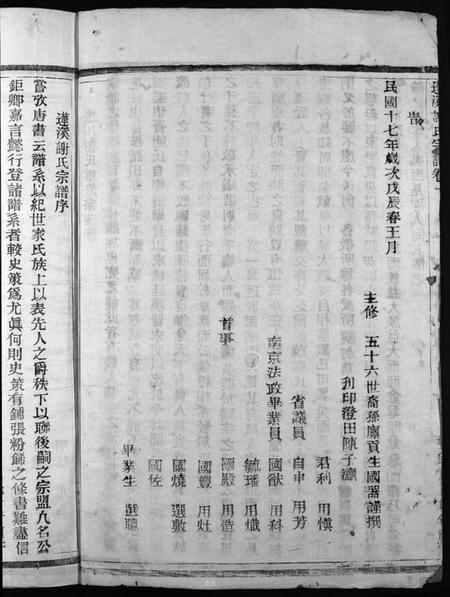 蓮溪謝氏宗譜卷一
民國十七年歲次戊辰春王月
主修 五十六世裔孫廩貢生國器謹撰
刋印澄田陳子瀛
君利 用慎
省議員 自申 用芳
南京法政畢業員 國猷 用科
毓璠 用熾
首事 國鼎 用造
國豐 用灶
國燒 選敷
國佐
畢業生 選聽
蓮溪謝氏宗譜序
嘗攷唐書云譜系以紀世家氏族上以表先人之爵秩下以聯後嗣之宗盟凡名公
鉅鄉嘉言懿行登諸譜系者較史策為尤眞何則史策有鋪張粉飾之條書難盡信